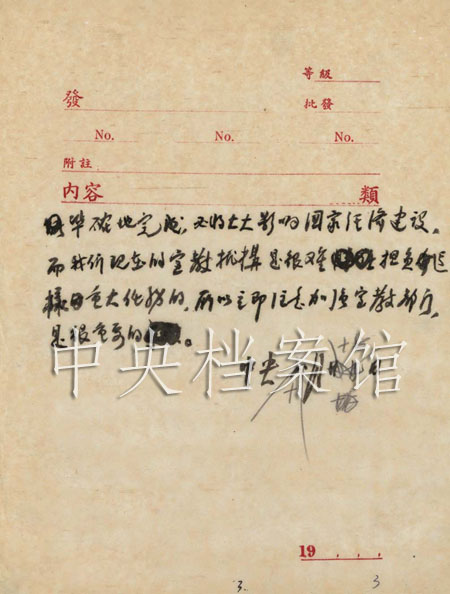 等級
發
批發
No. No. No.
附註
内容 類
準確地完成,必将大大影响国家经济建设。
而我们现在的宣教机構是很难担负这
樣重大任務的,所以立即注意加强宣教部门,
是很重要的。
中央档案馆
中央
19
3. 3